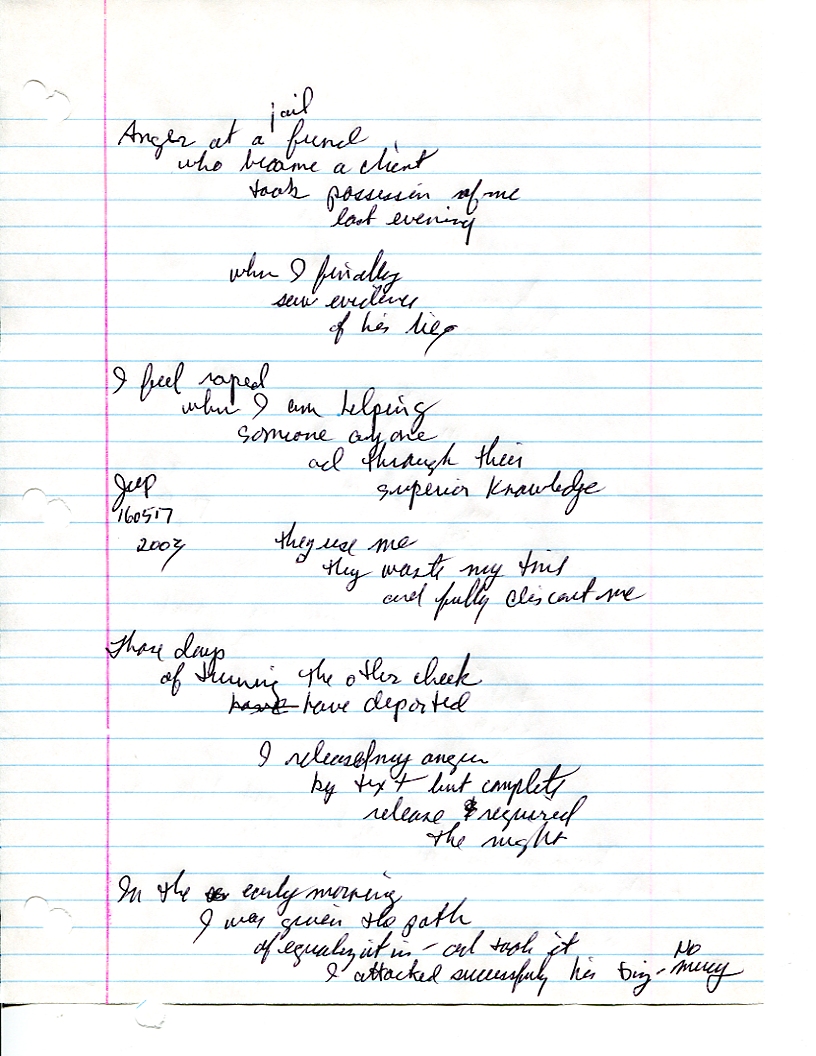 jail
Anger at a friend
who became a client
took possession of me
last evening
when I finally
saw evidence
of his lies
I feel raped
when I am helping
someone anyone
and through their
superior knowledge
Jeep
160517
2007
they use me
they waste my time
and fully discount me
Those days
of turning the other cheek
have departed
I released my anger
by text but complete
release required
the night
In the early morning
I was given the path
of equalization – and took it
No
I attacked successfully his – mercy